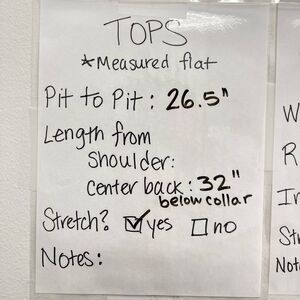 TOPS
*Measured flat
Pit to Pit: 26.5"
Length from
shoulder:
center back: 32"
below collar
Stretch? ☑yes ☐no
Notes:
W
R
In
Not